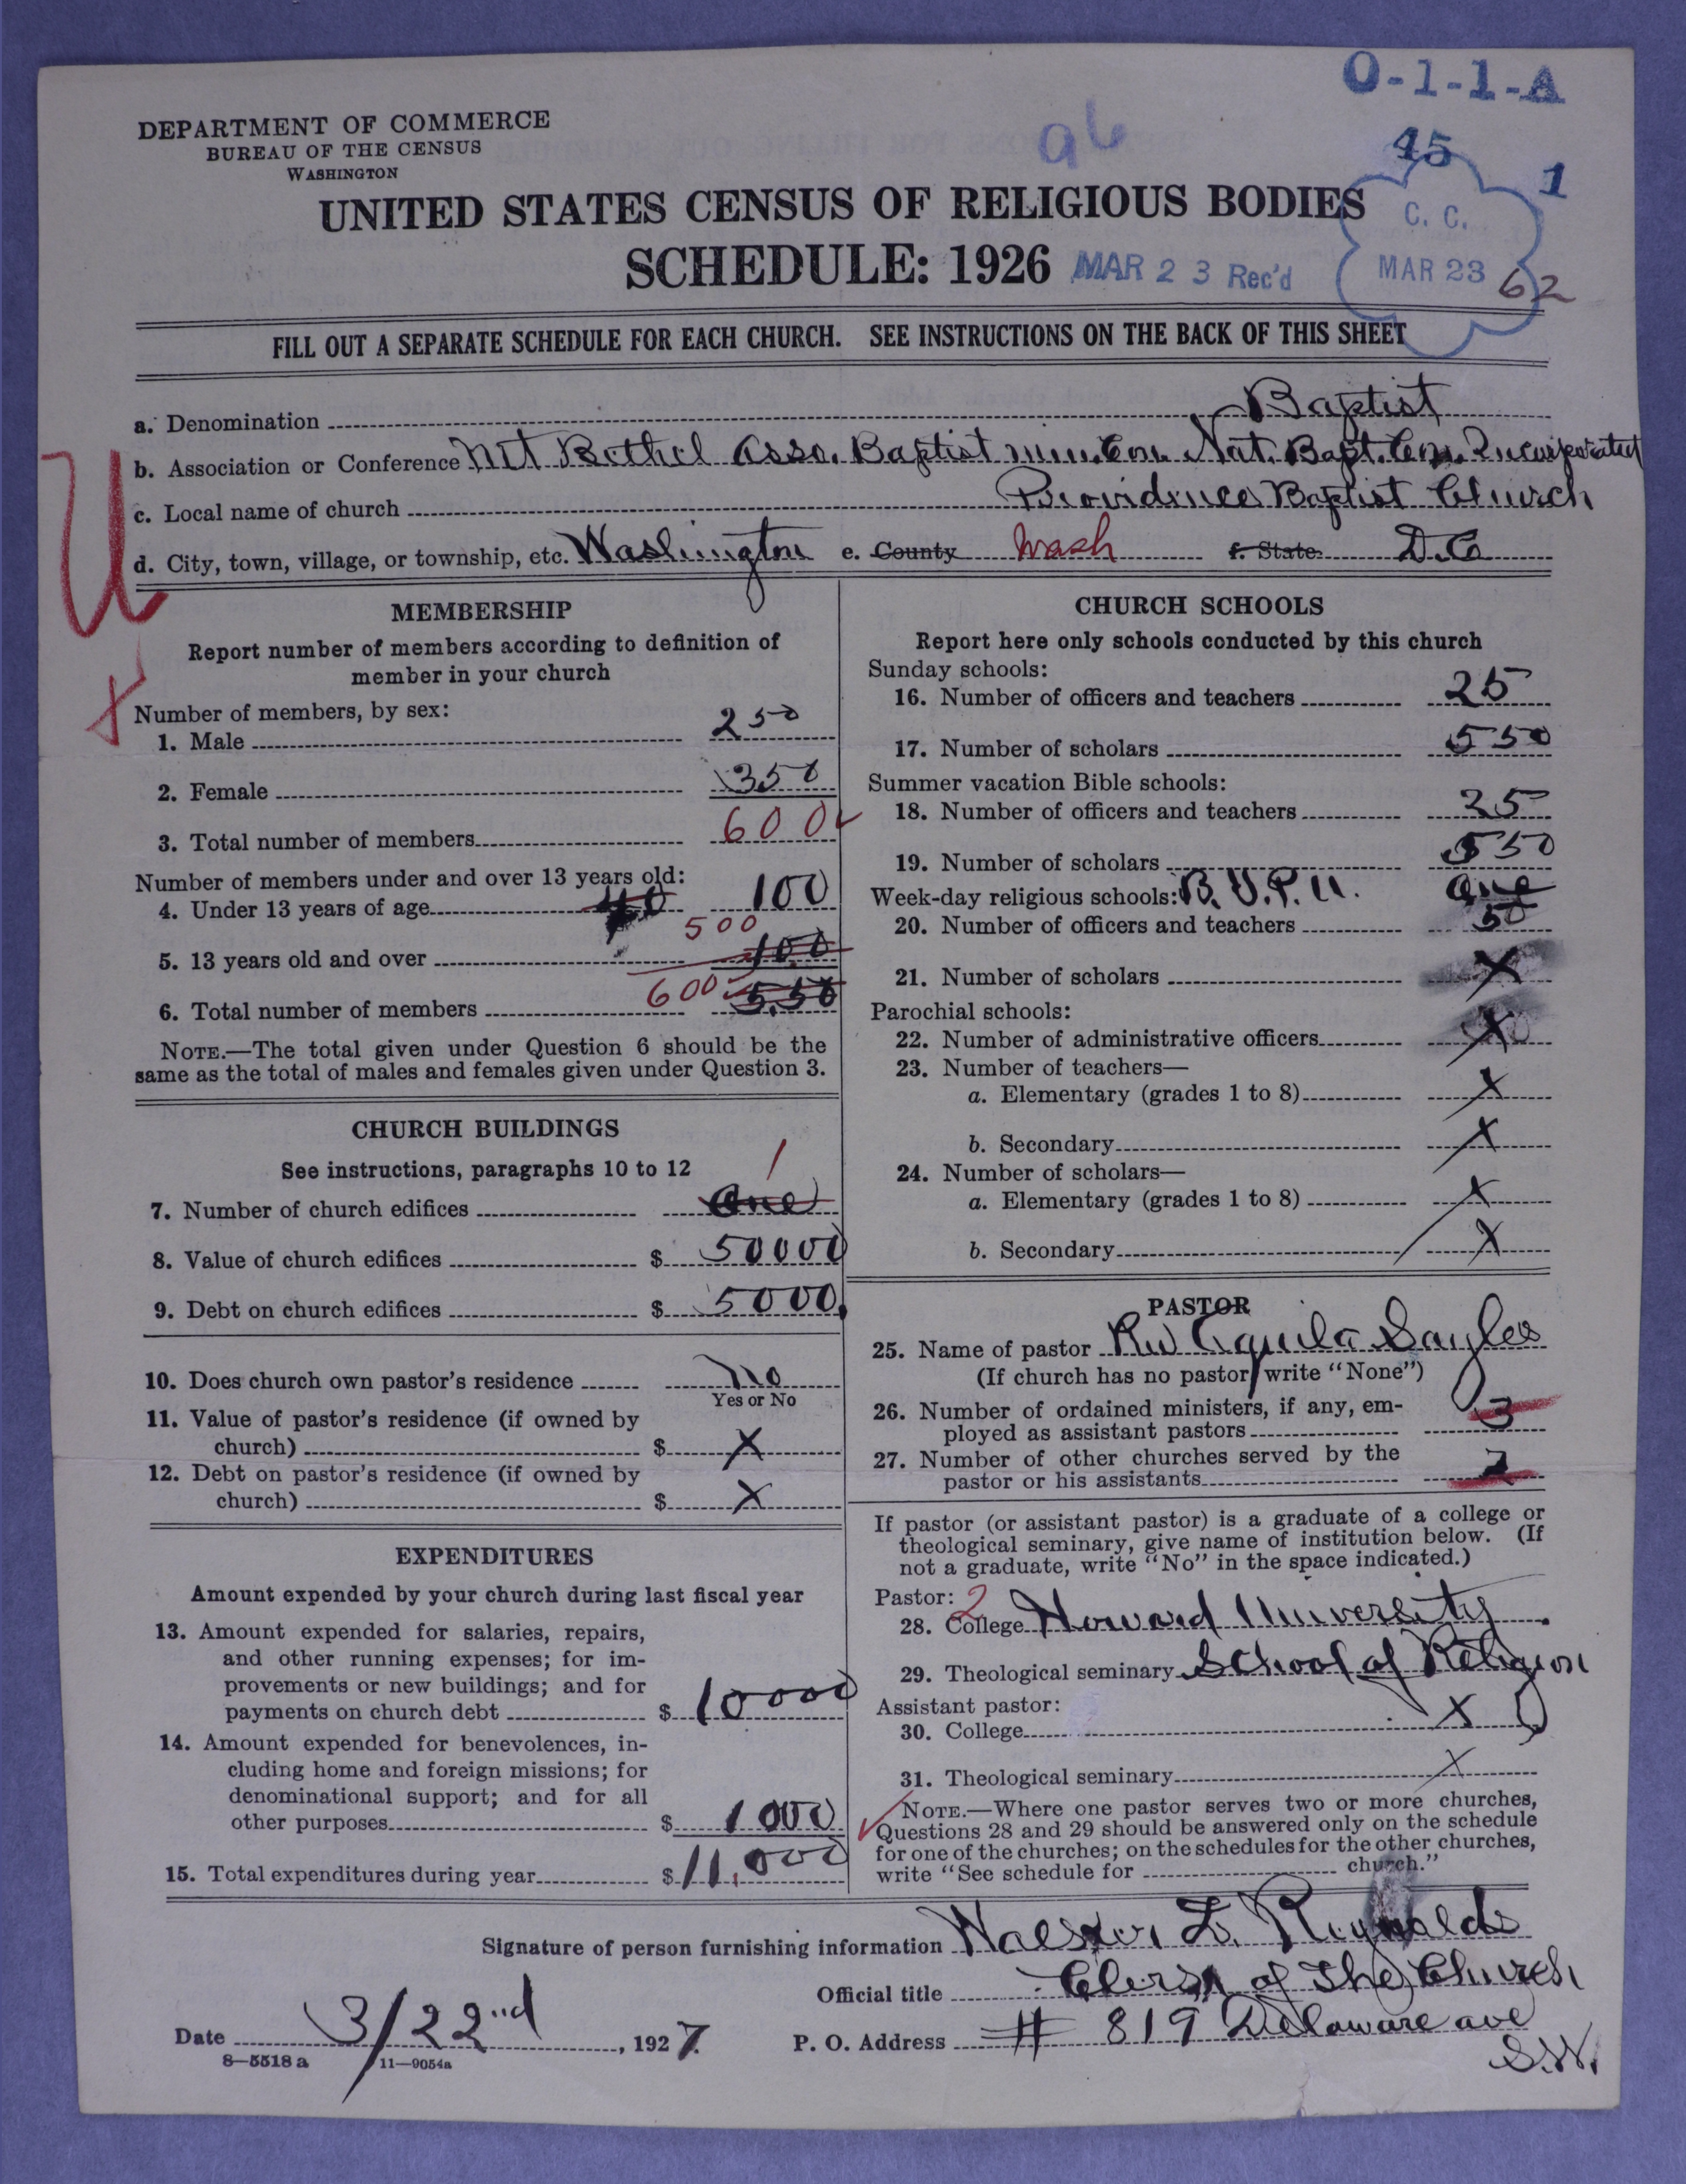 O-1-1-A
DEPARTMENT OF COMMERCE
BUREAU OF THE CENSUS
WASHINGTON
a6
45
1
UNITED STATES CENSUS OF RELIGIOUS BODIES
C. C.
SCHEDULE: 1926 MAR 23 Rec'd MAR 23 62
FILL OUT A SEPARATE SCHEDULE FOR EACH CHURCH. SEE INSTRUCTIONS ON THE BACK OF THIS SHEET
a. Denomination Baptist
b. Association or Conference Mt Bethel Asso. Baptist Min. Con. Nat. Bapt. Con. Incorporated
c. Local name of church Providence Baptist Church
d. City, town, village, or township, etc. Washington e. County Wash f. State D.C.
MEMBERSHIP
Report number of members according to definition of
member in your church
Number of members, by sex:
1. Male 250
2. Female 350
3. Total number of members 600
Number of members under and over 13 years old:
4. Under 13 years of age 40 100
500
5. 13 years old and over 100
6. Total number of members 600 550
NOTE.—The total given under Question 6 should be the
same as the total of males and females given under Question 3.
CHURCH BUILDINGS
See instructions, paragraphs 10 to 12 1
7. Number of church edifices One
8. Value of church edifices $ 50000
9. Debt on church edifices $ 5000.
10. Does church own pastor's residence no
Yes or No
11. Value of pastor's residence (if owned by
church) $ X
12. Debt on pastor's residence (if owned by
church) $ X
EXPENDITURES
Amount expended by your church during last fiscal year
13. Amount expended for salaries, repairs,
and other running expenses; for im-
provements or new buildings; and for
payments on church debt $ 10000
14. Amount expended for benevolences, in-
cluding home and foreign missions; for
denominational support; and for all
other purposes $ 1000
15. Total expenditures during year $ 11,000
CHURCH SCHOOLS
Report here only schools conducted by this church
Sunday schools:
16. Number of officers and teachers 25
17. Number of scholars 550
Summer vacation Bible schools:
18. Number of officers and teachers 25
19. Number of scholars 550
Week-day religious schools: B.Y.P.U. One
20. Number of officers and teachers 50
21. Number of scholars X
Parochial schools:
22. Number of administrative officers X
23. Number of teachers—
a. Elementary (grades 1 to 8) X
b. Secondary X
24. Number of scholars—
a. Elementary (grades 1 to 8) X
b. Secondary X
PASTOR
25. Name of pastor Rev Aquila Sayles
(If church has no pastor write "None")
26. Number of ordained ministers, if any, em-
ployed as assistant pastors 3
27. Number of other churches served by the
pastor or his assistants 2
If pastor (or assistant pastor) is a graduate of a college or
theological seminary, give name of institution below. (If
not a graduate, write "No" in the space indicated.)
Pastor: 2
28. College Howard University
29. Theological seminary School of Religion
Assistant pastor:
30. College X
31. Theological seminary X
NOTE.—Where one pastor serves two or more churches,
Questions 28 and 29 should be answered only on the schedule
for one of the churches; on the schedules for the other churches,
write "See schedule for church."
Signature of person furnishing information L. Reynolds
Official title Clerk of The Church
Date 3/22nd, 1927. P. O. Address # 819 Delaware ave
S.W.
8—5518 a 11—9054a